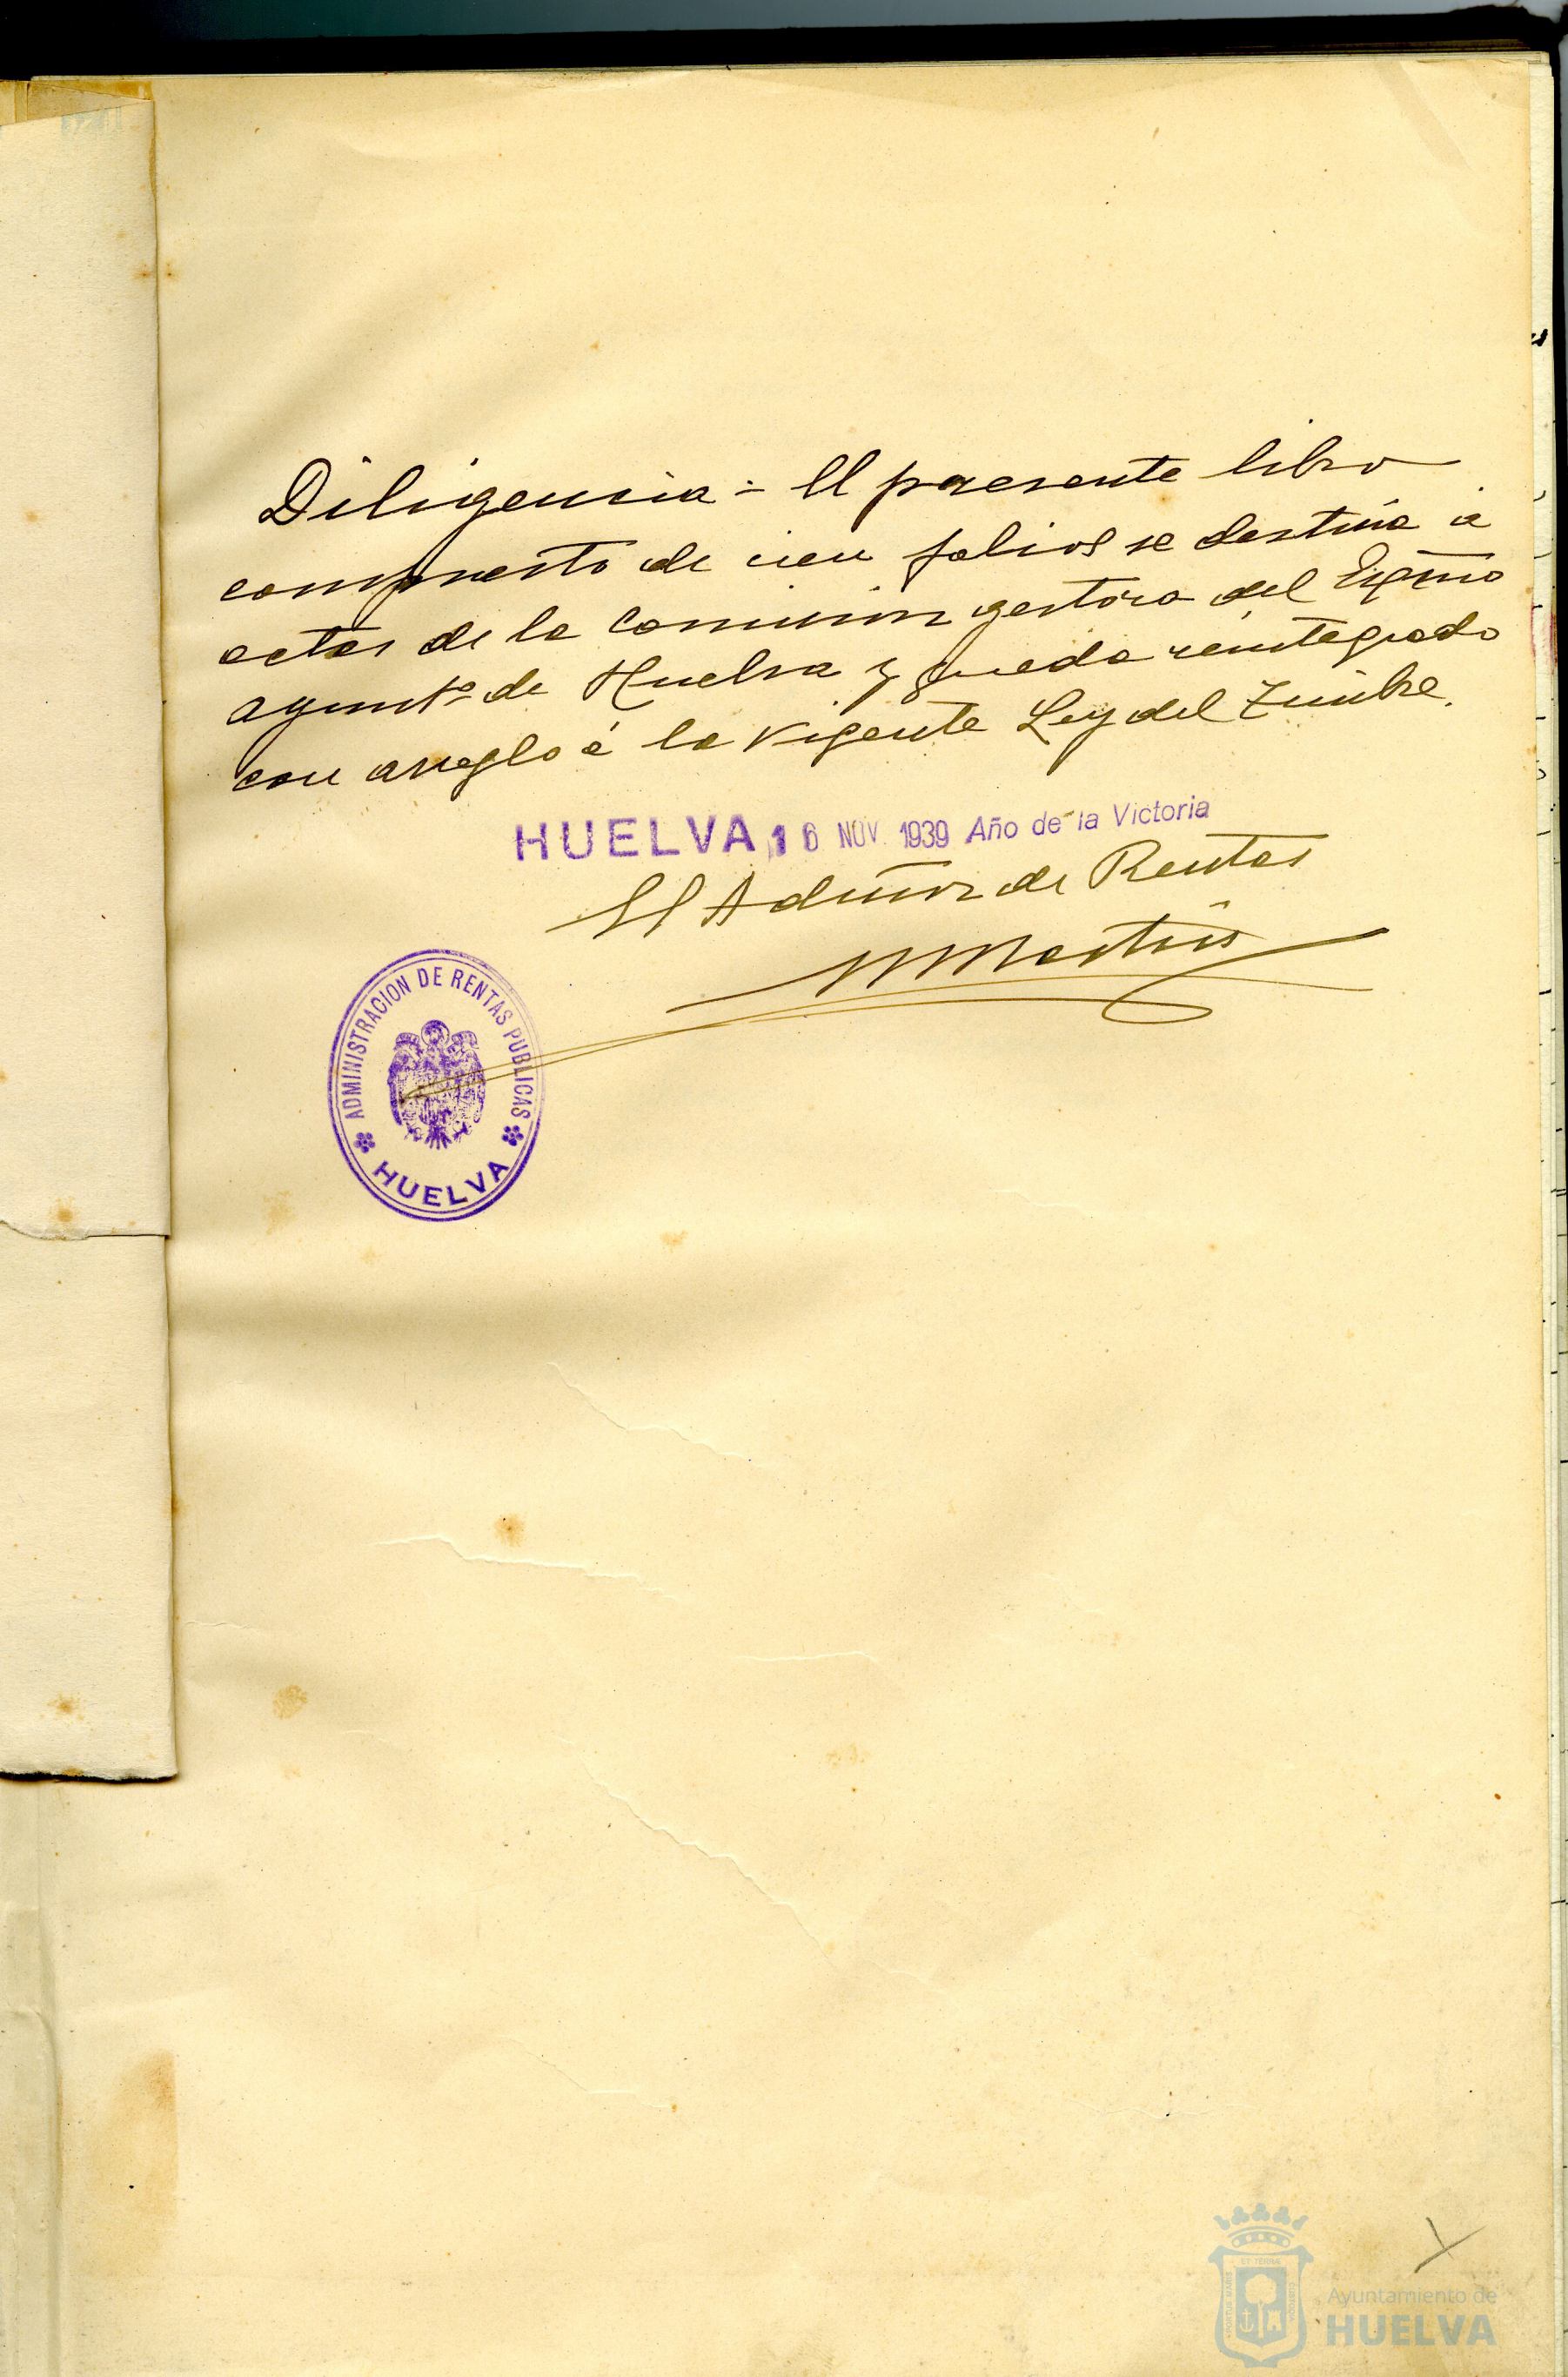 Diligencia = El presente libro
compuesto de cien folios se destina á
actas de la Comision gestora del Excmo
Ayuntº de Huelva y queda reintegrado
con arreglo á la vigente Ley del Timbre.
HUELVA 16 NOV. 1939 Año de la Victoria
El Admor de Rentas
M Martin
ADMINISTRACION DE RENTAS PUBLICAS
HUELVA
Ayuntamiento de
HUELVA